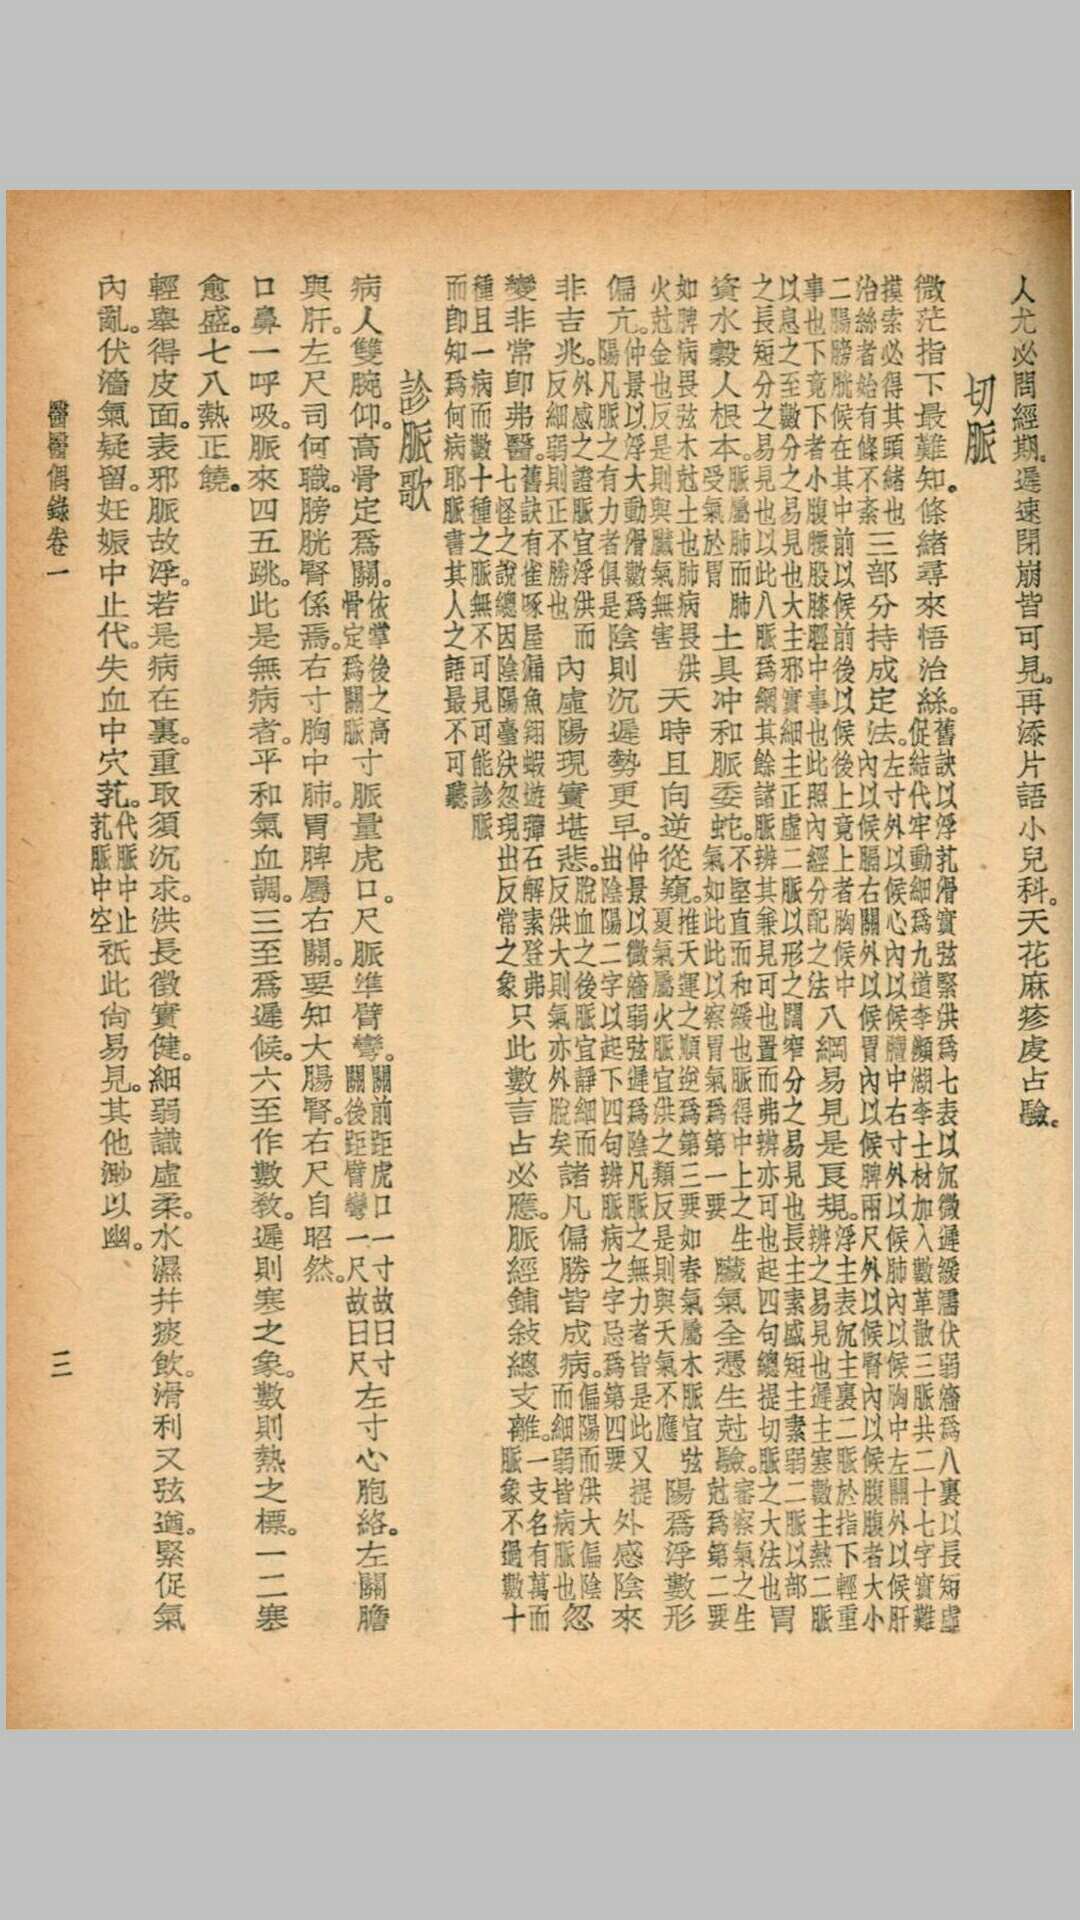 人尤必問經期。遲速閉崩皆可見。再添片語小兒科。天花麻疹虔占驗。
切脈
微茫指下最難知。條緒尋來悟治絲。舊訣以浮芤滑實弦緊洪爲七表以沉微遲緩濇伏弱濡爲八裏以長短虛促結代牢動細爲九道李瀕湖李士材加入數革散三脈共二十七字實難
摸索必得其頭緒也治絲者始有條不紊三部分持成定法。左寸外以候心內以候膻中右寸外以候肺內以候胸中左關外以候肝內以候膈右關外以候胃內以候脾兩尺外以候腎內以候腹腹者大小
二腸膀胱候在其中前以候前後以候後上竟上者胸候中事也下竟下者小腹腰股膝脛中事也此照內經分配之法八綱易見是良規。浮主表沉主裏二脈於指下輕重辨之易見也遲主寒數主熱二脈
以息之至數分之易見也大主邪實細主正虛二脈以形之闊窄分之易見也長主素盛短主素弱二脈以部之長短分之易見也以此八脈爲綱其餘諸脈辨其兼見可也置而弗辨亦可也起四句總提切脈之大法也胃
資水穀人根本。脈屬肺而肺受氣於胃土具冲和脈委蛇。不堅直而和緩也脈得中上之生氣如此此以察胃氣爲第一要臟氣全憑生尅驗。審察氣之生尅爲第二要
如脾病畏弦木尅土也肺病畏洪火尅金也反是則與臟氣無害天時且向逆從窺。推天運之順逆爲第三要如春氣屬木脈宜弦夏氣屬火脈宜洪之類反是則與天氣不應陽爲浮數形
偏亢。仲景以浮大動滑數爲陽凡脈之有力者俱是陰則沉遲勢更早。仲景以微濇弱弦遲爲陰凡脈之無力者皆是此又提出陰陽二字以起下四句辨脈病之字忌爲第四要外感陰來
非吉兆。外感之證脈宜浮供而反細弱則正不勝也內虛陽現實堪悲。脫血之後脈宜靜細而反洪大則氣亦外脫矣諸凡偏勝皆成病。偏陽而洪大偏陰而細弱皆病脈也忽
變非常卽弗醫。舊訣有雀啄屋偏魚翔蝦遊彈石解素登弗七怪之說總因陰陽臺決忽現出反常之象只此數言占必應。脈經鋪敍總支離。一支名有萬而脈象不過數十
種且一病而數十種之脈無不可見可能診脈而卽知爲何病耶脈書其人之語最不可聽
診脈歌
病人雙腕仰。高骨定爲關。依掌後之高骨定爲關脈寸脈量虎口。尺脈準臂彎。關前距虎口一寸故曰寸關後距臂彎一尺故曰尺左寸心胞絡。左關膽
與肝。左尺司何職。膀胱腎係焉。右寸胸中肺。胃脾屬右關。要知大腸腎。右尺自昭然。
口鼻一呼吸。脈來四五跳。此是無病者。平和氣血調。三至爲遲候。六至作數教。遲則寒之象。數則熱之標。一二寒
愈盛。七八熱正饒。
輕舉得皮面。表邪脈故浮。若是病在裏。重取須沉求。洪長徵實健。細弱識虛柔。水濕幷痰飲。滑利又弦遒。緊促氣
內亂。伏濇氣疑留。妊娠中止代。失血中穴芤。代脈中止芤脈中空祇此尙易見。其他渺以幽。
醫醫偶錄卷一
三